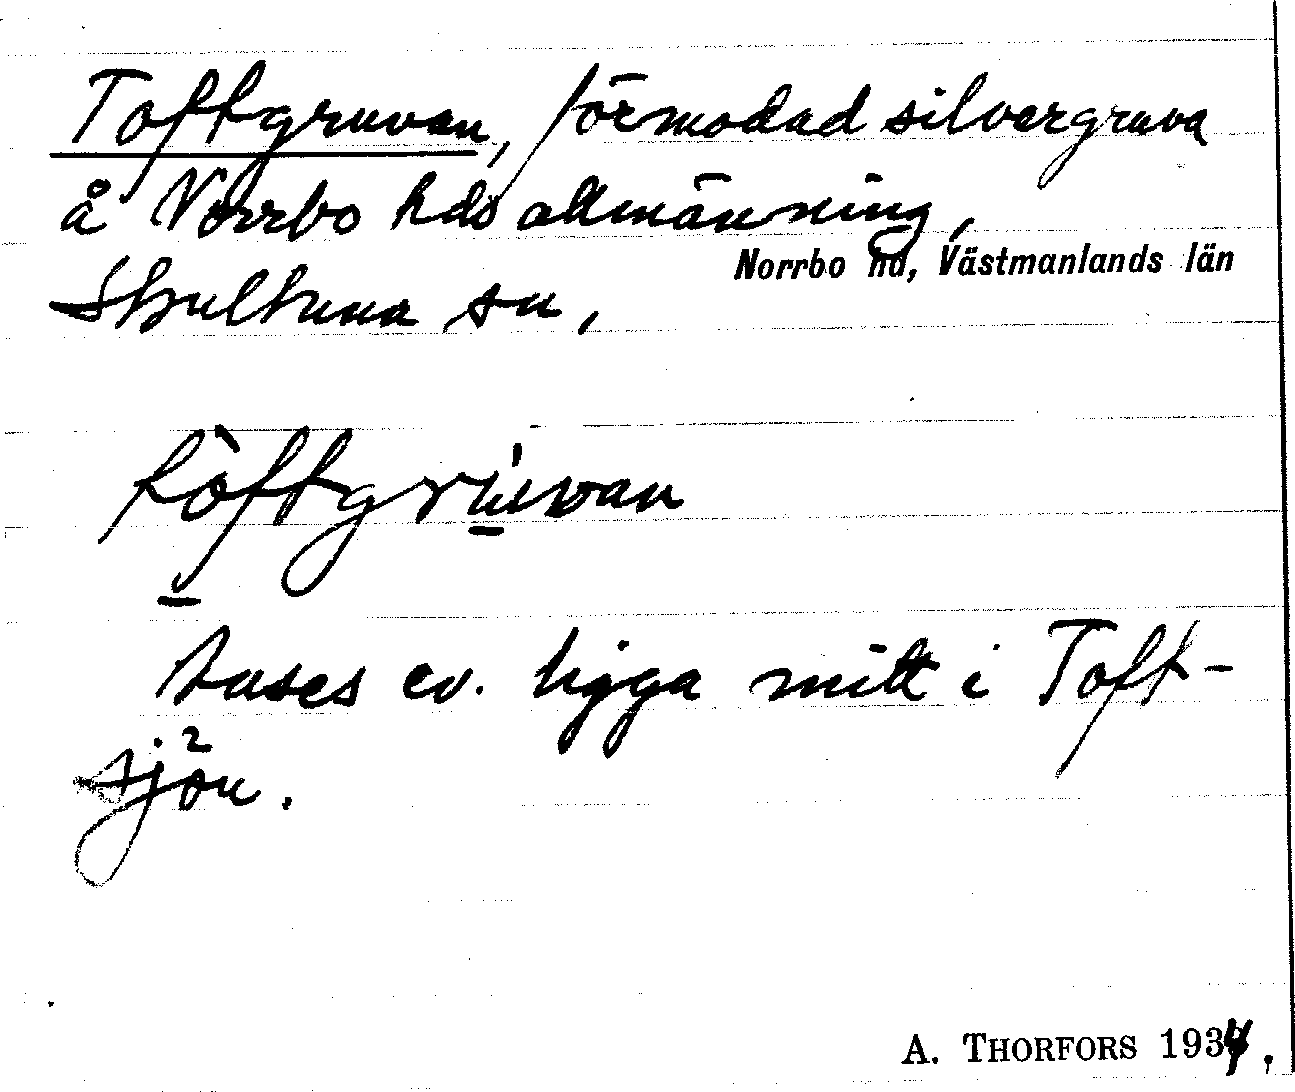 Toftgruvan, förmodad silvergruva
å Norrbo hds allmänning,
Norrbo hd, Västmanlands län
Skultuna sn,
tòftgrúvan
tases ev. ligga mitt i Toft-
sjön.
A. THORFORS 1934.